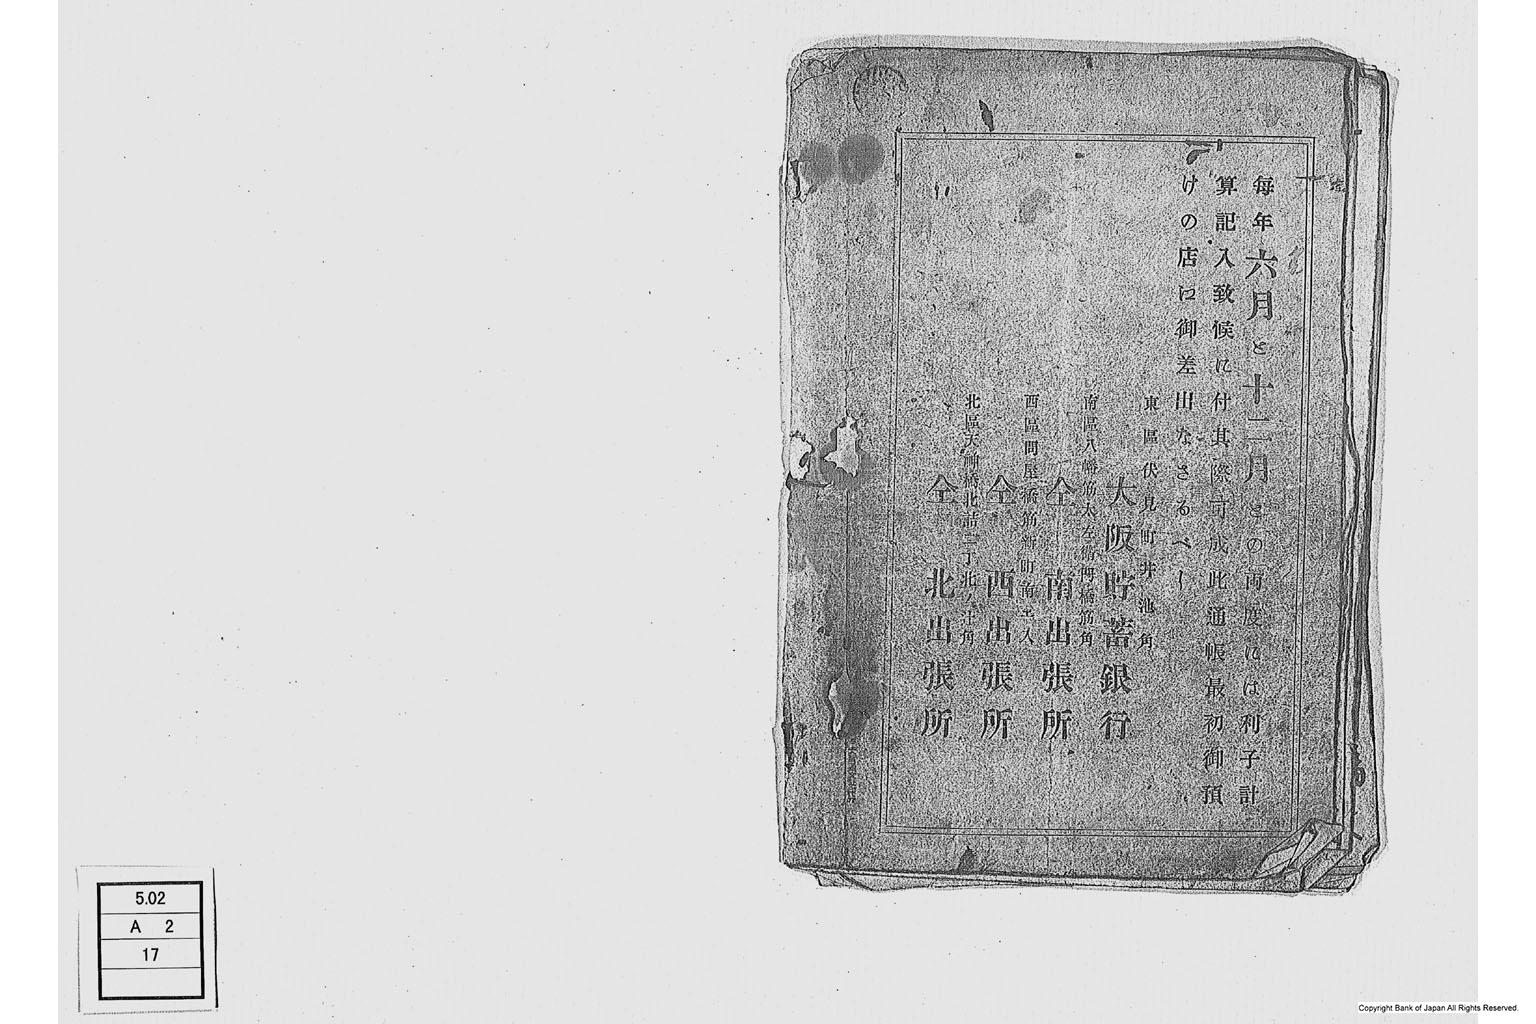 毎年六月と十二月との両度には利子計
算記入致候に付其際可成此通帳最初御預
けの店に御差出なさるべし
東區伏見町井池角
大阪貯蓄銀行
南區八幡筋太左衛門橋筋角
仝 南出張所
西區問屋橋筋新町南ヱ入
仝 西出張所
北區天神橋北詰二丁北ノ辻角
仝 北出張所
5.02
A 2
17
Copyright Bank of Japan All Rights Reserved.